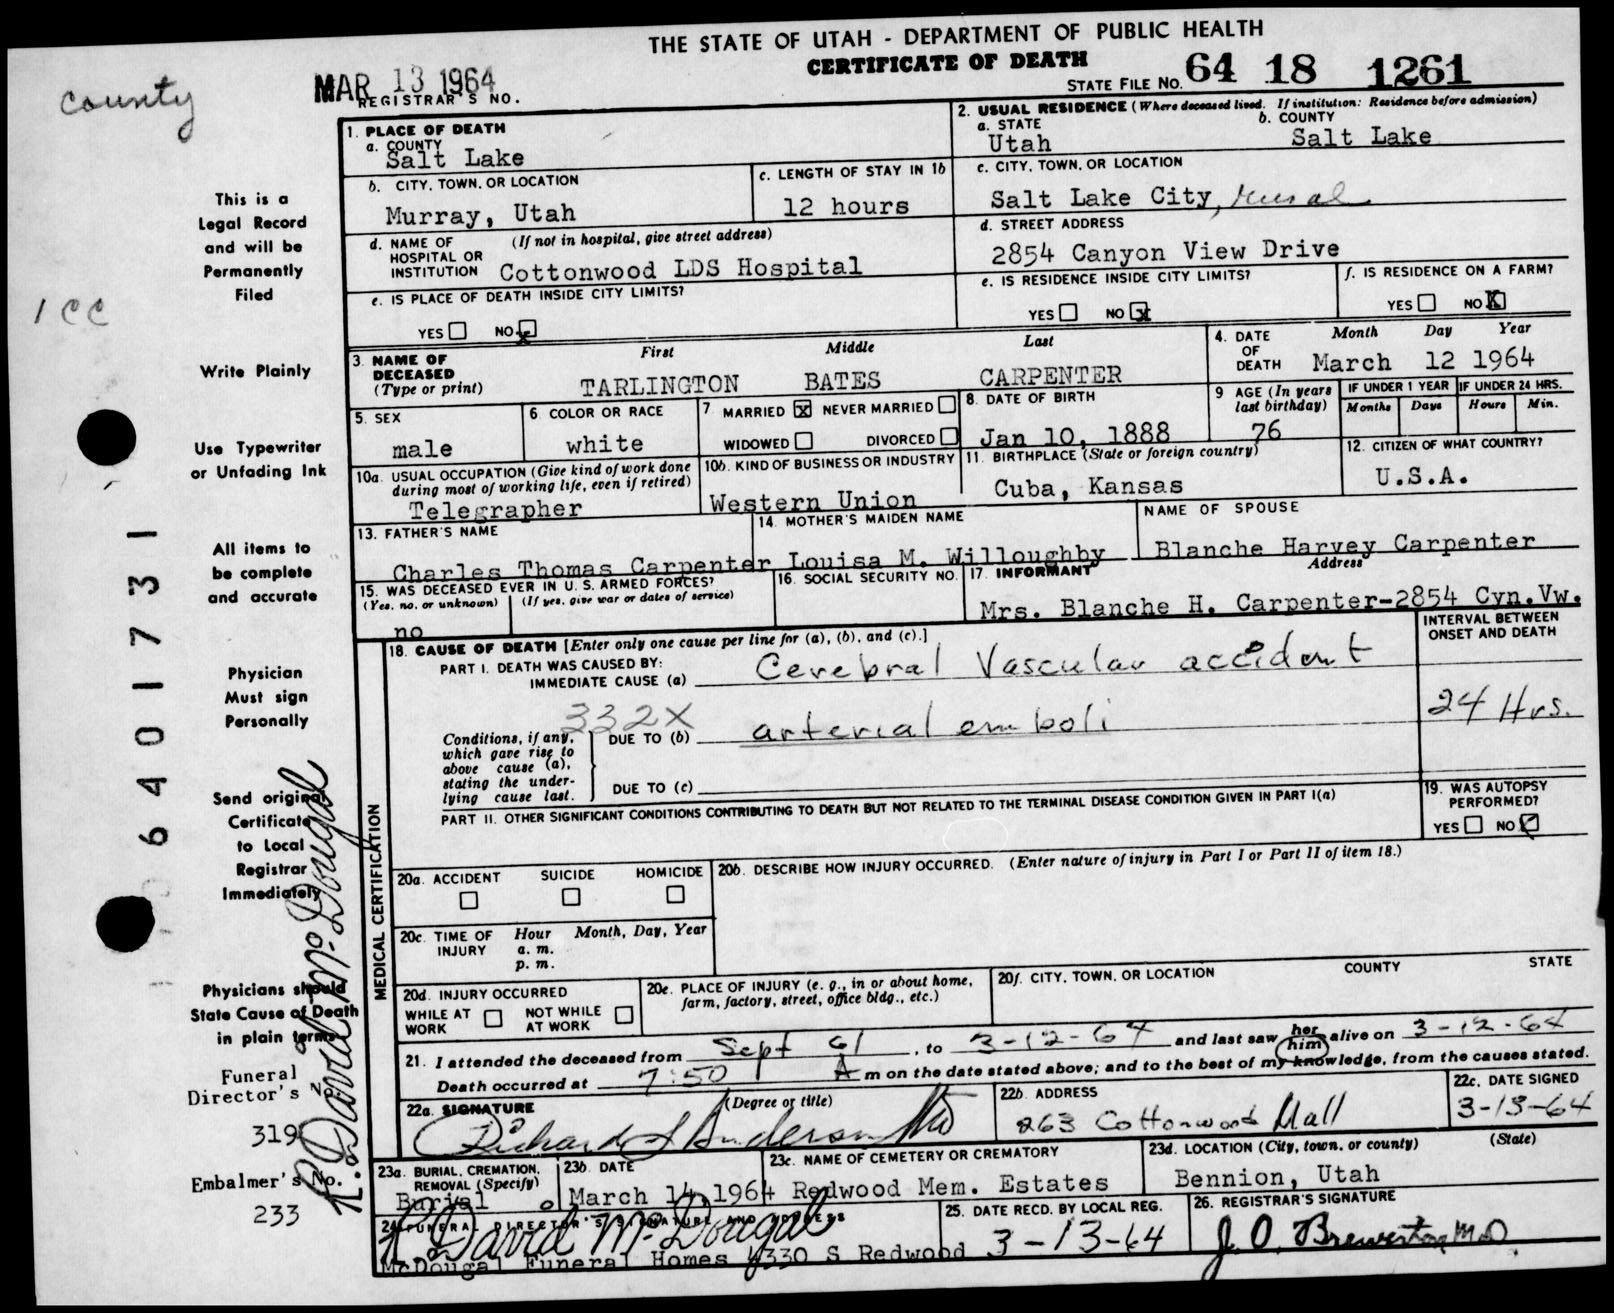 THE STATE OF UTAH - DEPARTMENT OF PUBLIC HEALTH
CERTIFICATE OF DEATH
county
MAR 13 1964
REGISTRAR'S NO.
STATE FILE NO. 64 18 1261
1. PLACE OF DEATH
a. COUNTY
Salt Lake
2. USUAL RESIDENCE (Where deceased lived. If institution: Residence before admission)
a. STATE
Utah
b. COUNTY
Salt Lake
b. CITY, TOWN, OR LOCATION
Murray, Utah
c. LENGTH OF STAY IN 1b
12 hours
c. CITY, TOWN, OR LOCATION
Salt Lake City, rural
d. NAME OF HOSPITAL OR INSTITUTION (If not in hospital, give street address)
Cottonwood LDS Hospital
d. STREET ADDRESS
2854 Canyon View Drive
e. IS PLACE OF DEATH INSIDE CITY LIMITS?
YES NO x
e. IS RESIDENCE INSIDE CITY LIMITS?
YES NO x
f. IS RESIDENCE ON A FARM?
YES NO X
3. NAME OF DECEASED (Type or print)
First Middle Last
TARLINGTON BATES CARPENTER
4. DATE OF DEATH
Month Day Year
March 12 1964
5. SEX
male
6. COLOR OR RACE
white
7. MARRIED x NEVER MARRIED
WIDOWED DIVORCED
8. DATE OF BIRTH
Jan 10, 1888
9 AGE (In years last birthday)
76
IF UNDER 1 YEAR
Months Days
IF UNDER 24 HRS.
Hours Min.
10a. USUAL OCCUPATION (Give kind of work done during most of working life, even if retired)
Telegrapher
10b. KIND OF BUSINESS OR INDUSTRY
Western Union
11. BIRTHPLACE (State or foreign country)
Cuba, Kansas
12. CITIZEN OF WHAT COUNTRY?
U.S.A.
13. FATHER'S NAME
Charles Thomas Carpenter
14. MOTHER'S MAIDEN NAME
Louisa M. Willoughby
NAME OF SPOUSE
Blanche Harvey Carpenter
15. WAS DECEASED EVER IN U. S. ARMED FORCES?
(Yes, no, or unknown) (If yes, give war or dates of service)
no
16. SOCIAL SECURITY NO.
17. INFORMANT Address
Mrs. Blanche H. Carpenter-2854 Cyn.Vw.
18. CAUSE OF DEATH [Enter only one cause per line for (a), (b), and (c).]
PART I. DEATH WAS CAUSED BY:
IMMEDIATE CAUSE (a) Cerebral Vascular accident
INTERVAL BETWEEN ONSET AND DEATH
24 Hrs.
332X
Conditions, if any, which gave rise to above cause (a), stating the underlying cause last.
DUE TO (b) arterial emboli
DUE TO (c)
PART II. OTHER SIGNIFICANT CONDITIONS CONTRIBUTING TO DEATH BUT NOT RELATED TO THE TERMINAL DISEASE CONDITION GIVEN IN PART I(a)
19. WAS AUTOPSY PERFORMED?
YES NO
MEDICAL CERTIFICATION
20a. ACCIDENT SUICIDE HOMICIDE
20b. DESCRIBE HOW INJURY OCCURRED. (Enter nature of injury in Part I or Part II of item 18.)
20c. TIME OF INJURY
Hour Month, Day, Year
a. m.
p. m.
20d. INJURY OCCURRED
WHILE AT WORK NOT WHILE AT WORK
20e. PLACE OF INJURY (e. g., in or about home, farm, factory, street, office bldg., etc.)
20f. CITY, TOWN, OR LOCATION COUNTY STATE
21. I attended the deceased from Sept 61, to 3-12-64 and last saw her him alive on 3-12-64
Death occurred at 7:50 A m on the date stated above; and to the best of my knowledge, from the causes stated.
22a. SIGNATURE (Degree or title)
Richard S Anderson MD
22b. ADDRESS
263 Cottonwood Mall
22c. DATE SIGNED
3-13-64
23a. BURIAL, CREMATION, REMOVAL (Specify)
Burial
23b. DATE
March 14, 1964
23c. NAME OF CEMETERY OR CREMATORY
Redwood Mem. Estates
23d. LOCATION (City, town, or county) (State)
Bennion, Utah
24. FUNERAL DIRECTOR'S SIGNATURE AND ADDRESS
R. David McDougal
McDougal Funeral Homes 4330 S Redwood
25. DATE RECD. BY LOCAL REG.
3-13-64
26. REGISTRAR'S SIGNATURE
J. O. Brewerton MD
This is a
Legal Record
and will be
Permanently
Filed
1 CC
Write Plainly
Use Typewriter
or Unfading Ink
All items to
be complete
and accurate
6401731
Physician
Must sign
Personally
Send original
Certificate
to Local
Registrar
Immediately
Physicians should
State Cause of Death
in plain terms
Funeral
Director's
319
Embalmer's No.
233
R. David McDougal